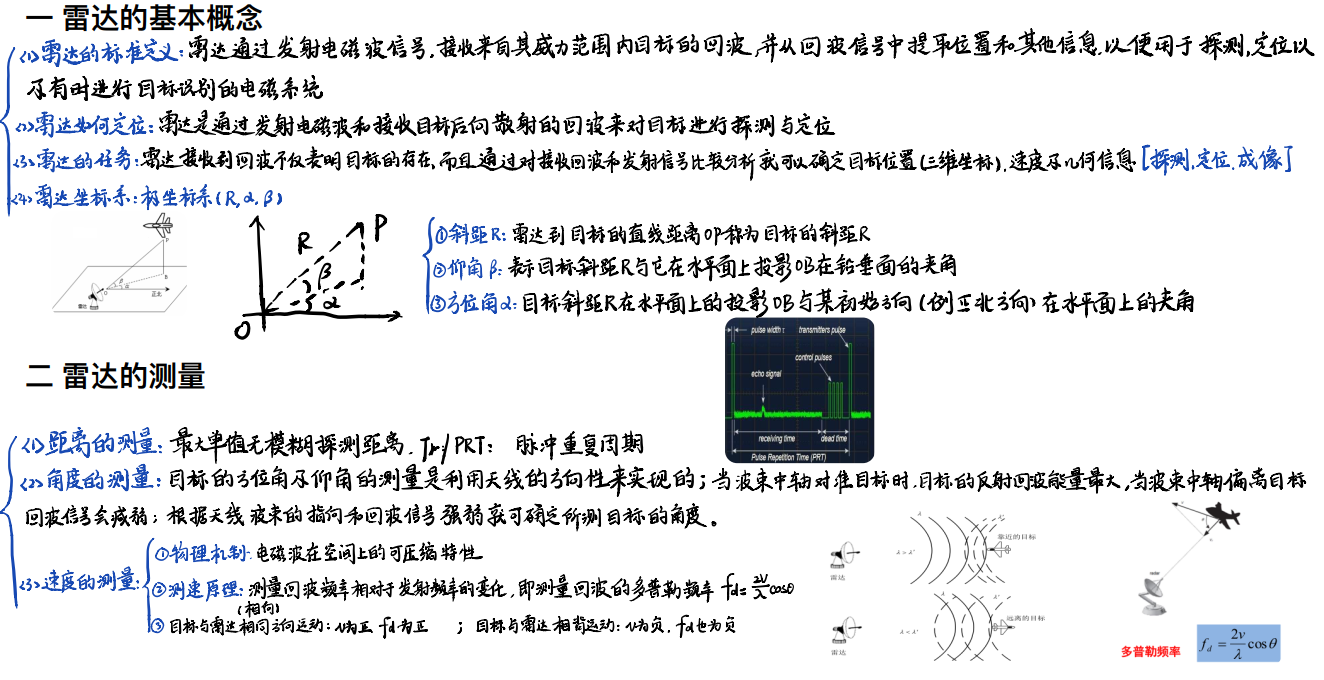 一 雷达的基本概念
(1)雷达的标准定义:雷达通过发射电磁波信号,接收来自其威力范围内目标的回波,并从回波信号中提取位置和其他信息.以便用于探测,定位以
及有时进行目标识别的电磁系统
(2)雷达如何定位:雷达是通过发射电磁波和接收目标后向散射的回波来对目标进行探测与定位
(3)雷达的任务:雷达接收到回波不仅表明目标的存在,而且通过对接收回波和发射信号比较分析就可以确定目标位置(三维坐标),速度及几何信息[探测,定位.成像]
(4)雷达坐标系:极坐标系(R,α,β)
P
R
β
α
O
P
β
α
B
O
正北
雷达
①斜距R:雷达到目标的直线距离OP称为目标的斜距R
②仰角β:表示目标斜距R与它在水平面上投影OB在铅垂面的夹角
③方位角α:目标斜距R在水平面上的投影OB与某初始方向(例正北方向)在水平面上的夹角
pulse width τ
transmitters pulse
control pulses
echo signal
receiving time
dead time
Pulse Repetition Time (PRT)
二 雷达的测量
(1)距离的测量:最大单值无模糊探测距离.Tr/PRT:脉冲重复周期
(2)角度的测量:目标的方位角及仰角的测量是利用天线的方向性来实现的;当波束中轴对准目标时.目标的反射回波能量最大,当波束中轴偏离目标
回波信号会减弱;根据天线波束的指向和回波信号强弱就可确定所测目标的角度。
(3)速度的测量:
①物理机制:电磁波在空间上的可压缩特性
②测速原理:测量回波频率相对于发射频率的变化,即测量回波的多普勒频率 fd=2V/λ cosθ
(相向)
③目标与雷达相同方向运动:v为正 fd为正 ;目标与雷达相背运动:v为负,fd也为负
λ
λ'
λ > λ'
靠近的目标
雷达
λ
λ'
λ < λ'
远离的目标
雷达
radar
多普勒频率
f_d = 2v/λ cosθ